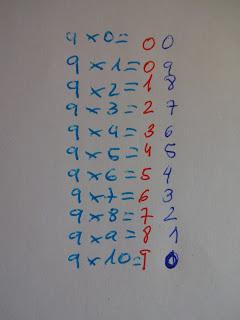 9 x 0 = 0 0
9 x 1 = 0 9
9 x 2 = 1 8
9 x 3 = 2 7
9 x 4 = 3 6
9 x 5 = 4 5
9 x 6 = 5 4
9 x 7 = 6 3
9 x 8 = 7 2
9 x 9 = 8 1
9 x 10 = 9 0